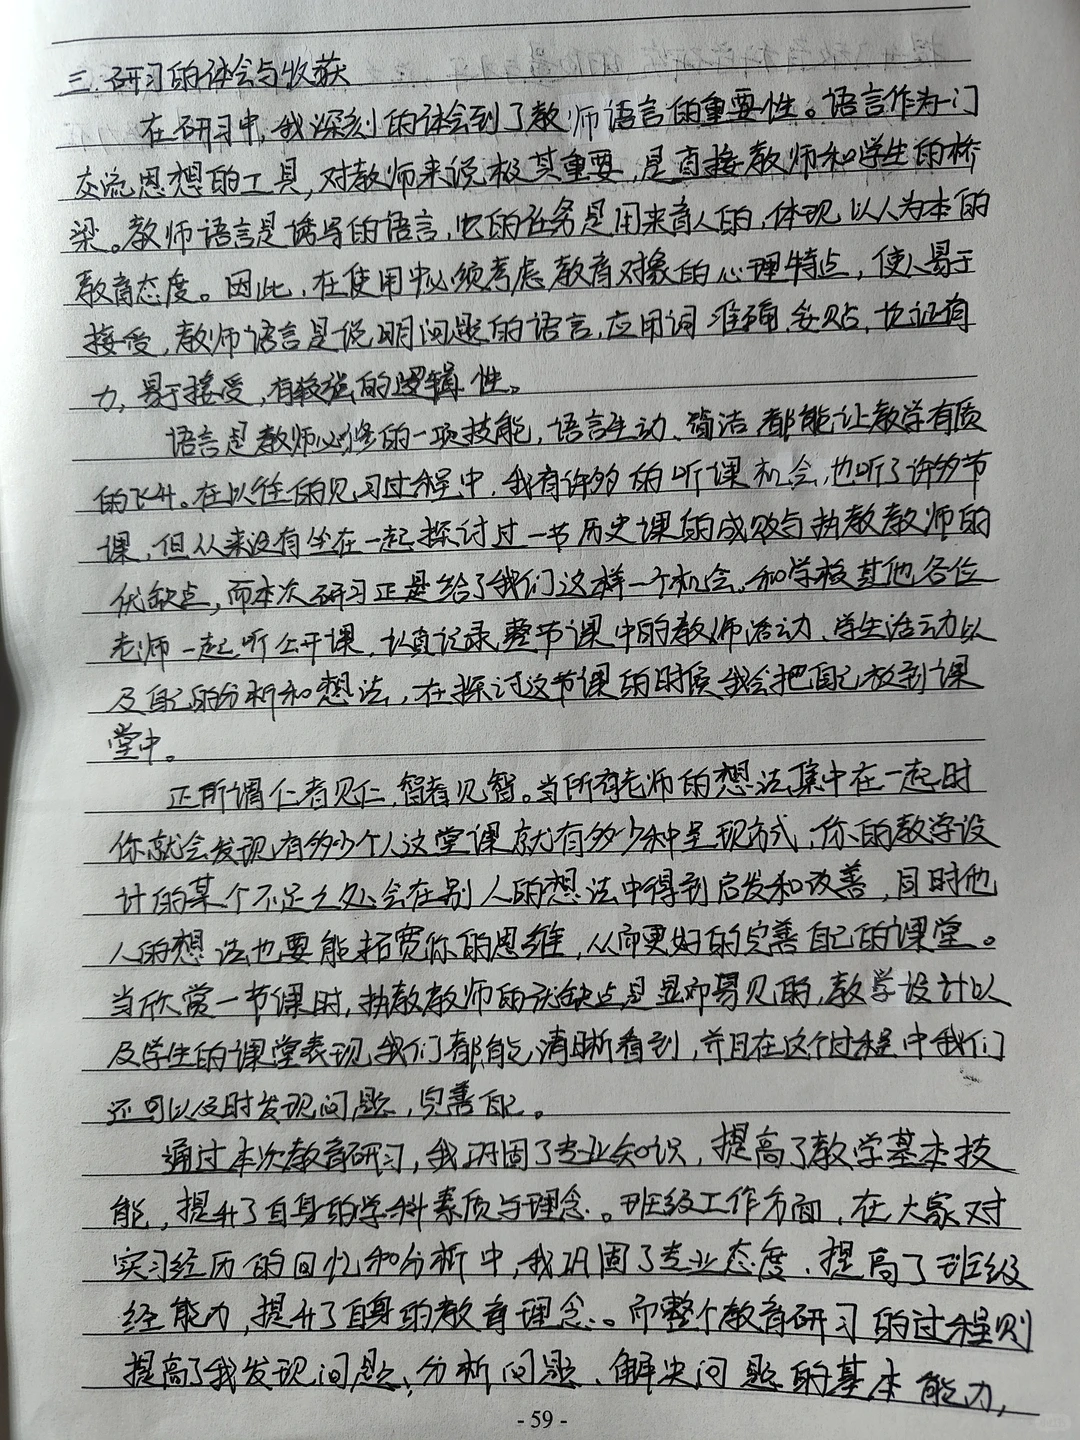 三.研习的体会与收获
在研习中,我深刻的体会到了教师语言的重要性。语言作为一门
交流思想的工具,对教师来说极其重要,是直接教师和学生的桥
梁。教师语言是诱导的语言,它的任务是用来育人的,体现以人为本的
教育态度。因此,在使用中必须考虑教育对象的心理特点,使人易于
接受,教师语言是说明问题的语言,应用词准确妥贴,论证有
力,易于接受,有较强的逻辑性。
语言是教师必修的一项技能,语言生动、简洁都能让教学有质
的飞升。在以往的见习过程中,我有许多的听课机会,也听了许多节
课,但从来没有坐在一起探讨过一节历史课的成败与执教教师的
优缺点,而本次研习正是给了我们这样一个机会。和学校其他各位
老师一起听公开课,认真记录整节课中的教师活动、学生活动以
及自己的分析和想法,在探讨这节课的时候我会把自己放到课
堂中。
正所谓仁者见仁,智者见智。当所有老师的想法集中在一起时
你就会发现,有多少个人这堂课就有多少种呈现方式,你的教学设
计的某个不足之处会在别人的想法中得到启发和改善,同时他
人的想法也要能拓宽你的思维,从而更好的完善自己的课堂。
当欣赏一节课时,执教教师的优缺点是显而易见的,教学设计以
及学生的课堂表现我们都能清晰看到,并且在这个过程中我们
还可以及时发现问题,完善自己。
通过本次教育研习,我巩固了专业知识,提高了教学基本技
能,提升了自身的学科素质与理念。班级工作方面,在大家对
实习经历的回忆和分析中,我巩固了专业态度、提高了班级
经能力,提升了自身的教育理念。而整个教育研习的过程则
提高了我发现问题、分析问题、解决问题的基本能力,
- 59 -